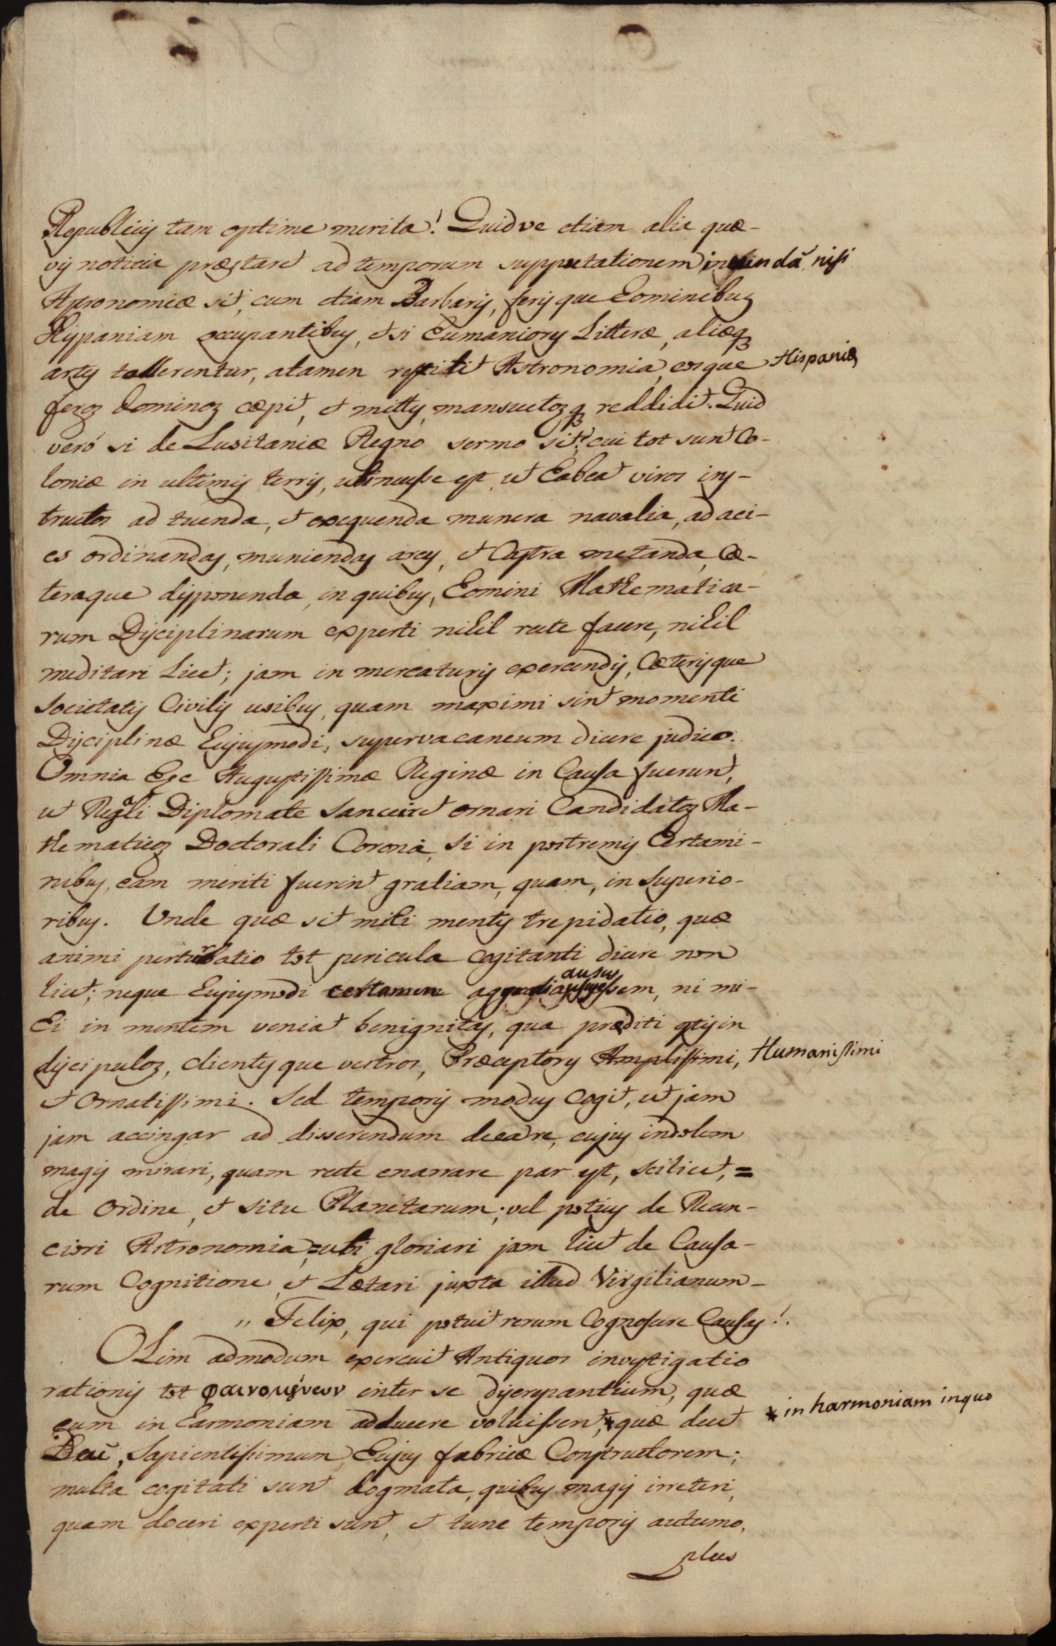 Republicis tam optime merita! Quidve etiam alia quæ-
vis noticia præstare ad temporum supputationem ineundã nisi
Astronomiæ sit, cum etiam Barbaris, ferisque hominibus
Hispaniam occupantibus, etsi humaniores Litteræ, aliæq
artes tollerentur, atamen Astronomia, eosque Hispaniæ
feros dominos cæpit, et mites, mansuetosq reddidit. Quid
veró si de Lusitaniæ Regno sermo sit? cui tot sunt Co-
loniæ in ultimis terris, ubi necesse est, ut habeat viros ins-
tructos ad tuenda, et exequenda munera navalia, ad aci-
es ordinandas, muniendas arces, et Castra metanda, Cæ-
teraque disponenda, in quibus, homini Mathematica-
rum Disciplinarum experti nihil recte facere, nihil
meditari Licet; jam in mercaturis exercendis, Cæterisque
Societatis Civilis usibus, quam maximi sint momenti
Disciplinæ hujusmodi, supervacaneum dicere judico.
Omnia hæc Augustissimæ Reginæ in Causa fuerunt,
ut Regali Diplomate sanciret ornari Candidatos Ma-
thematicos Doctorali Corona, si in postremis Certami-
nibus, eam meriti fuerint gratiam, quam, in superio-
ribus. Unde quæ sit mihi mentis trepidatio, quæ
animi perturbatio tot pericula cogitanti dicere non
licet; neque hujusmodi certamen aggredi ausus essem, ni mi-
hi in mentem veniat benignitas, qua præditi estis in
discipulos, clientesque vestros, Præceptores Amplissimi, Humanissimi
et Ornatissimi. Sed temporis modus cogit, ut jam
jam accingar ad disserendum de ea re, cujus indolem
magis mirari, quam recte enarrare par est, scilicet, =
de Ordine, et situ Planetarum; vel potius de Recen-
ciori Astronomia, = ubi gloriari jam licet de Causa-
rum Cognitione, et Lætari juxta illud Virgilianum-
,, Felix, qui potuit rerum Cognoscere Causas!.
Olim admodum exercuit Antiquos investigatio
rationis tot φαινομένων inter se discrepantium, quæ
cum in harmoniam adducere voluissent, * quæ decet * in harmoniam inquo
Deũ, Sapientissimum hujus fabricæ Constructorem;
multa cogitati sunt dogmata, quibus magis irreteri,
quam doceri experti sunt, et tunc temporis autumo,
plus